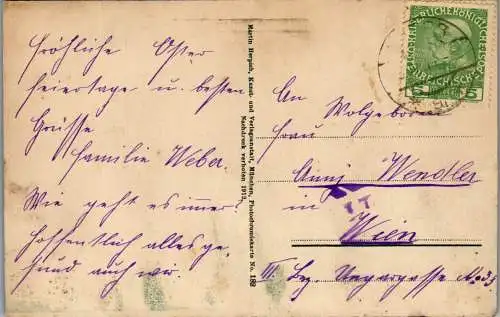 Fröhliche Oster
feiertage u. besten
Grüsse
Familie Weber.
Wie geht es imer?
Hoffentlich alles ge-
sund auch wir.
Martin Herpich, Kunst- und Verlagsanstalt, München, Photochromiekarte No. 182
Nachdruck verboten 1912.
KAISERLICHE KÖNIGLICHE ÖSTERREICHISCHE POST
5 5
An Wolgeborn
Frau
Wendler
in
Wien
III. Bez. Ungargasse No. 39